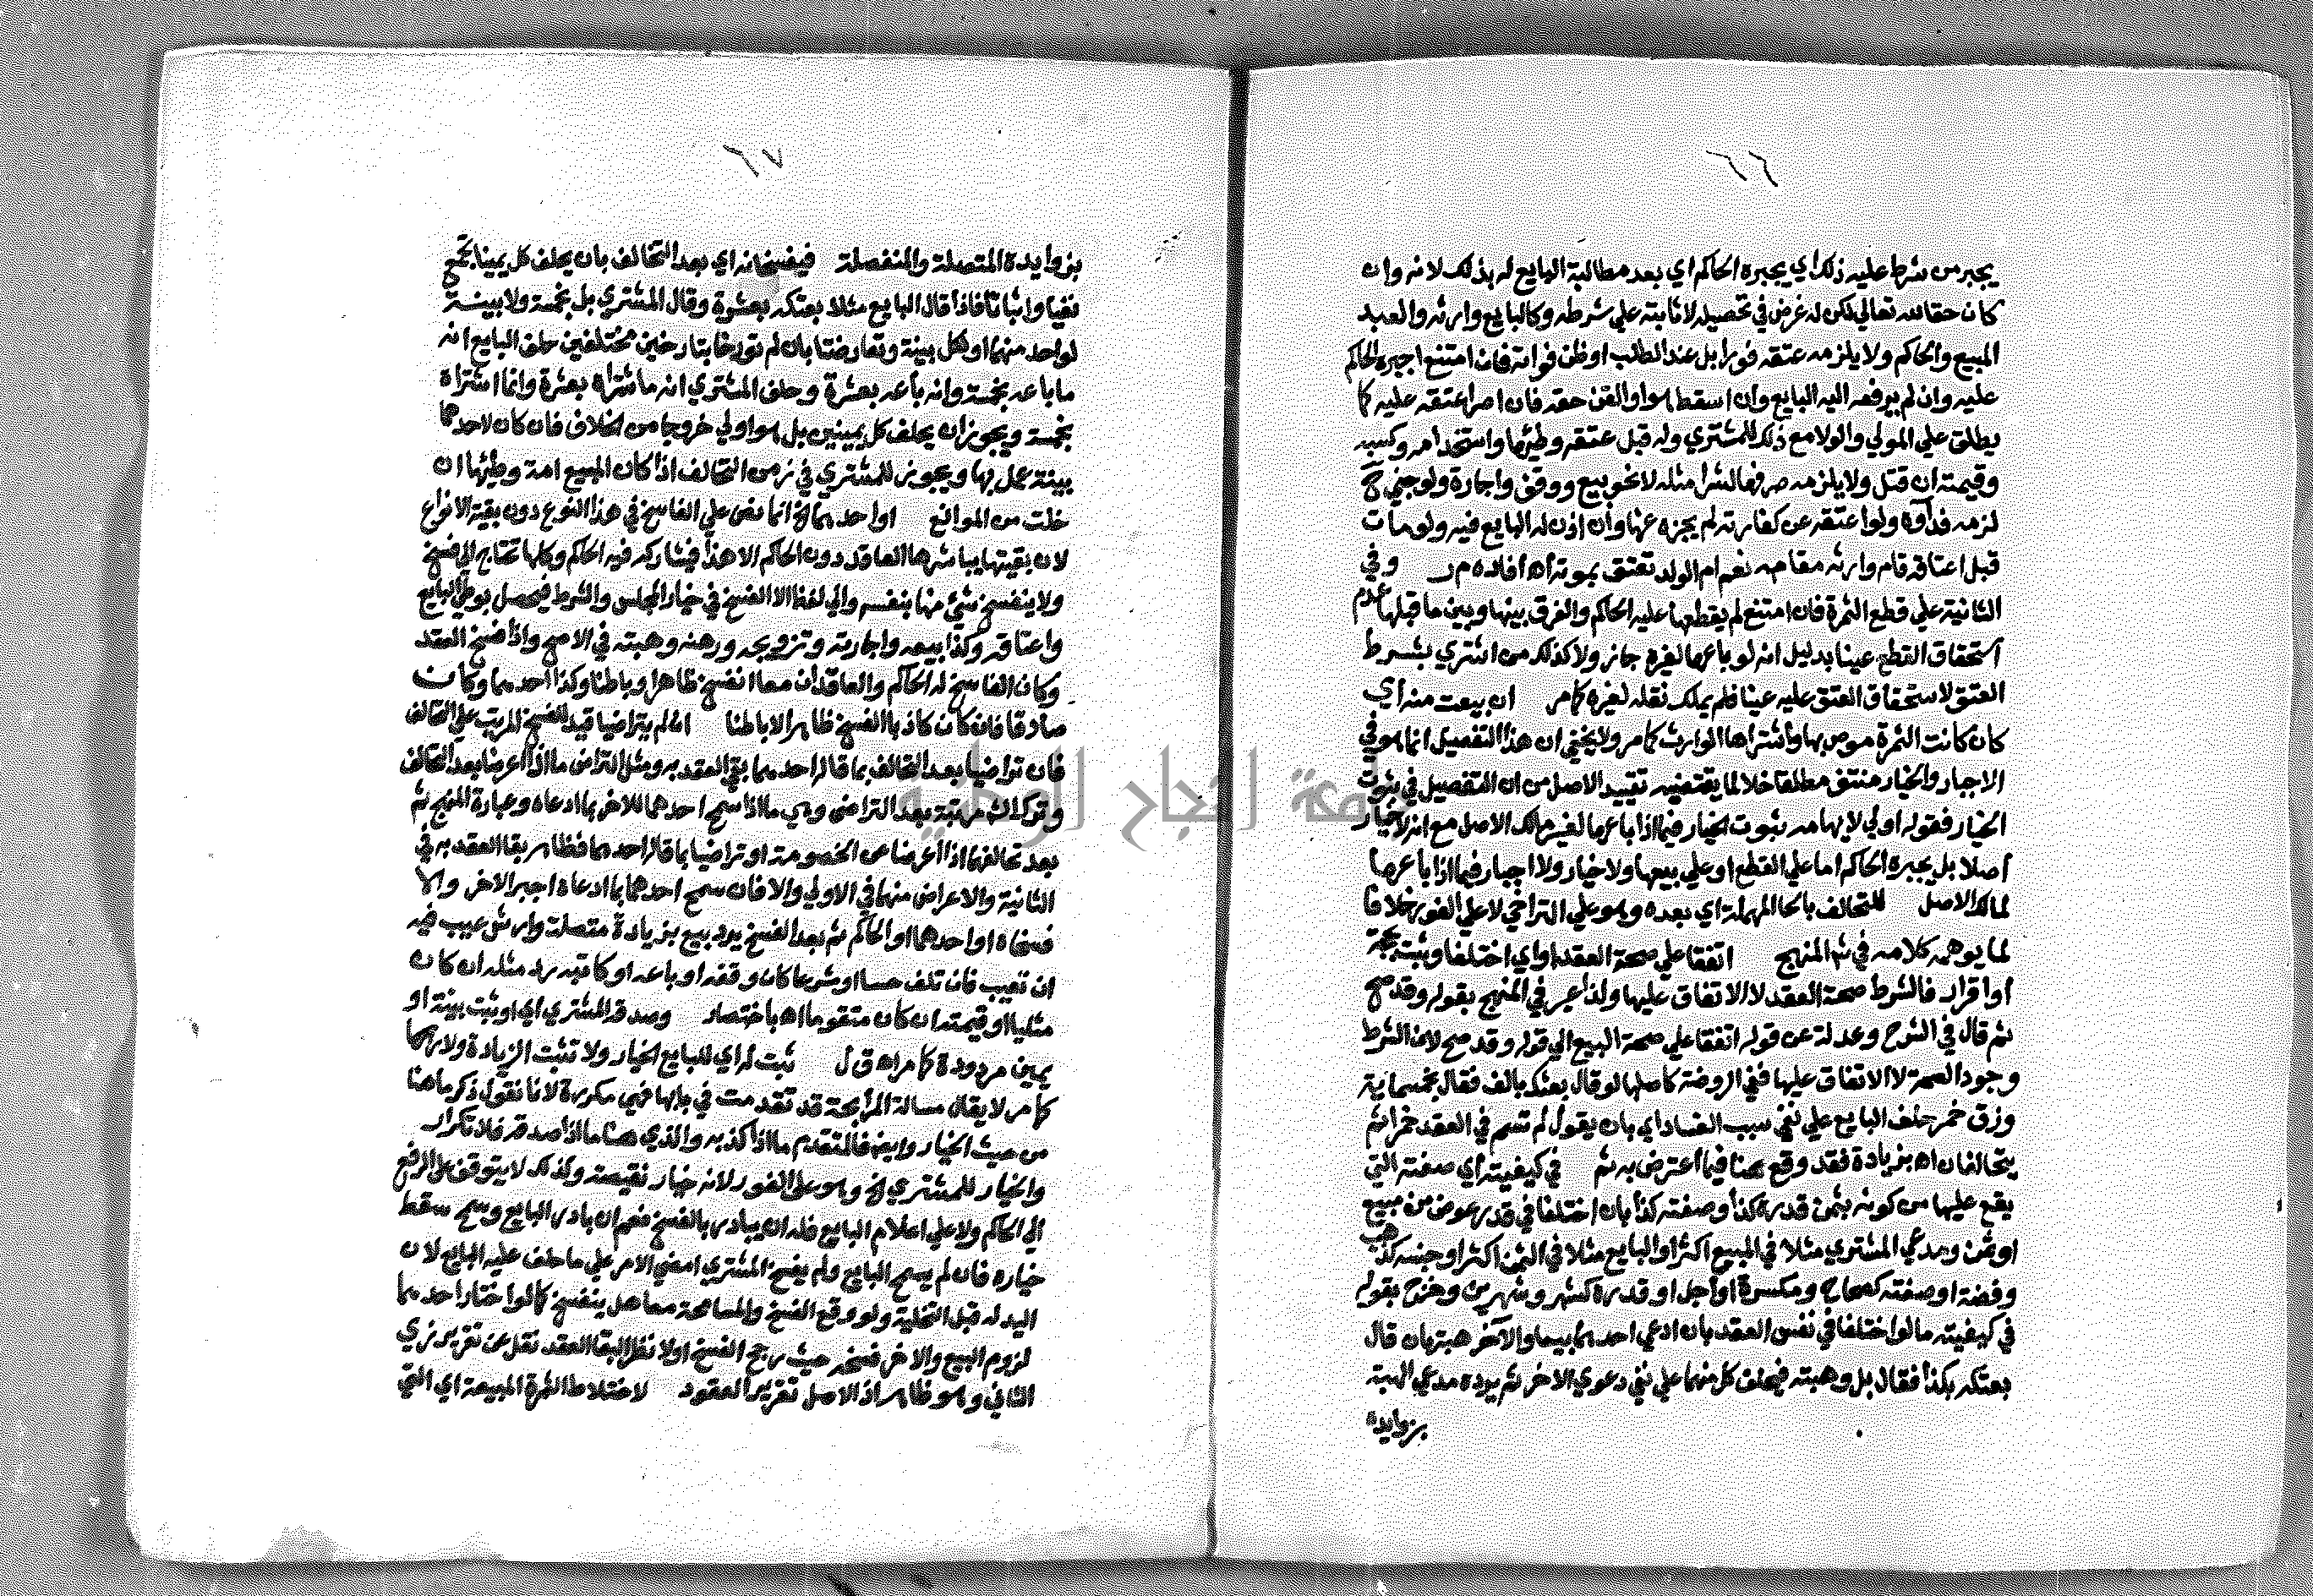 ٦٦
يجبر من شرط عليه ذلك اي يجبره الحاكم اي بعد مطالبة البايع له بذلك لانه وان
كان حقا لله تعالي لكن له غرض في تحصيله لاثابته علي شرطه وكالبايع وارثه والعبد
المبيع والحاكم ولا يلزمه عتقه فورا بل عند الطلب او ظن فواته فان امتنع اجبره الحاكم
عليه وان لم يرفعه اليه البايع وان اسقط هو او القن حقه فان اصر اعتقه عليه كما
يطلق علي المولي والولا مع ذلك للمشتري وله قبل عتقه وطئها واستخدامه وكسبه
وقيمته ان قتل ولا يلزمه صرفها لشرا مثله لا نحو بيع ووقف واجارة ولو جني
لزمه فداوه ولو اعتقه عن كفارته لم يجزه عنها وان اذن له البايع فيه ولو مات
قبل اعتاقه قام وارثه مقامه نعم ام الولد تعتق بموته اه افاده م ر وفي
الثانية علي قطع الثمرة فان امتنع لم يقطعها عليه الحاكم والفرق بينها وبين ما قبلها عدم
استحقاق القطع عينا بدليل انه لو باعها لغيره جاز ولا كذلك من اشتري بشرط
العتق لاستحقاق العتق عليه عينا فلم يملك نقله لغيره كما مر ان بيعت منه اي
كان كانت الثمرة موصي بها واشتراها الوارث كما مر ولا يخفي ان هذا التفصيل انما هو في
الاجبار والخيار منتف مطلقا خلا لما يقتضيه تقييد الاصل من ان التفصيل في ثبوت
الخيار فقوله اولي لايهامه ثبوت الخيار فيما اذا باعها لغير مالك الاصل مع انه لا خيار
اصلا بل يجبره الحاكم اما علي القطع او علي بيعها ولا خيار ولا اجبار فيما اذا باعها
لمالك الاصل للتحالف بالحا المهملة اي بعده وهو علي التراخي لا علي الفور خلافا
لما يوهمه كلامه في شم المنهج اتفقا علي صحة العقد او اي اختلفا وثبتت بحجة
او اقرار فالشرط صحة العقد لا الاتفاق عليها ولذا عبر في المنهج بقوله وقد صح
ثم قال في الشرح وعدلة عن قوله اتفقا علي صحة البيع الي قوله وقد صح لان الشرط
وجود الصحة لا الاتفاق عليها ففي الروضة كاصلها لو قال بعتك بالف فقال بخمسماية
وزق خمر حلف البايع علي نفي سبب الفساد اي بان يقول لم نسم في العقد خمرا ثم
يتحالفان اه بزيادة فقد وقع هنا فيما اعترض به ثم في كيفيته اي صفته التي
يقع عليها من كونه بثمن قدره كذا وصفته كذا بان اختلفا في قدر عوض من مبيع
او ثمن ومدعي المشتري مثلا في المبيع اكثر او البايع مثلا في الثمن اكثر او جنسه كذهب
وفضة او صفته كصحاح ومكسرة او اجل او قدره كشهر وشهرين وخرج بقوله
في كيفيته ما لو اختلفا في نفس العقد بان ادعي احدهما بيعا والاخر هبة بان قال
بعتكه بكذا فقال بل وهبته فيحلف كل منهما علي نفي دعوي الاخر ثم يرده مدعي الهبة
بزوايده
٦٧
بزوايده المتصلة والمنفصلة فيفسخانه اي بعد التحالف بان يحلف كل يمينا تجمع
نفيا واثباتا فاذا قال البايع مثلا بعتكه بعشرة وقال المشتري بل بخمسة ولا بينة
لواحد منهما او لكل بينة وتعارضتا بان لم تورخا بتارخين مختلفين حلف البايع انه
ما باعه بخمسة وانه باعه بعشرة وحلف المشتري انه ما شتراه بعشرة وانما اشتراه
بخمسة ويجوز ان يحلف كل يمينين بل هو اولي خروجا من الخلاف فان كان لاحدهما
بينة عمل بها ويجوز للمشتري في زمن التحالف اذا كان المبيع امة وطئها ان
خلت من الموانع او احدهما الخ انما نص علي الفاسخ في هذا النوع دون بقية الانواع
لان بقيتها يباشرها العاقد دون الحاكم الا هذا فيشاركه فيه الحاكم وكلها تحتاج الي فسخ
ولا ينفسخ شئ منها بنفسه والي لفظ الا الفسخ في خيار المجلس والشرط فيحصل بوطئ البايع
واعتاقه وكذا بيعه واجارته وتزويجه ورهنه وهبته في الاصح واذا فسخ العقد
وكان الفاسخ له الحاكم والعاقدان معا انفسخ ظاهرا وباطنا وكذا احدهما وكان
صادقا فان كان كاذبا انفسخ ظاهرا لا باطنا ان لم يتراضيا قيد للفسخ المرتب علي التحالف
فان تراضيا بعد التحالف بما قاله احدهما بقي العقد به ومثل التراض ما اذا اعرضا بعد التحالف
وتركا الشم مرتبة بعد التراضى وهي ما اذا سمح احدهما للاخر بما ادعاه وعبارة المنهج ثم
بعد تحالفهما اذا اعرضا عن الخصومة او تراضيا بما قاله احدهما فظاهر بقا العقد به في
الثانية والاعراض منهما في الاولي والا فان سمح احدهما بما ادعاه اجبر الاخر والا
فسخاه او احدهما او الحاكم ثم بعد الفسخ يرد بيع بزيادة متصلة وارش عيب فيه
ان تعيب فان تلف حسا او شرعا كان وقفه او باعه او كاتبه رد مثله ان كان
مثليا او قيمته ان كان متقوما اه باختصار وصدقه المشتري اي او ثبت ببينة او
يمين مردودة كما مر اه ق ل ثبت له اي للبايع الخيار ولا تثبت الزيادة ولا ربحها
كما مر لا يقال مسالة المرابحة قد تقدمت في بابها فهي مكررة لانا نقول ذكر ما هنا
من حيث الخيار وايضا فالمتقدم ما اذا كذبه والذي هنا ما اذا صدقه فلا تكرار
والخيار للمشتري الخ وهو علي الفور لانه خيار نقيصة وكذلك لا يتوقف علي الرفع
الي الحاكم ولا علي اعلام البايع فله ان يبادر بالفسخ نعم ان بادر البايع وسمح سقط
خياره فان لم يسمح البايع ولم يفسخ المشتري امضي الامر علي ما حلف عليه البايع لان
اليد له قبل التخلية ولو وقع الفسخ والمسامحة معا هل ينفسخ كما لو اختار احدهما
لزوم البيع والاخر فسخه حيث يرجح الفسخ او لا نظر البقا العقد نقل عن تقرير زي
الثاني وهو ظاهر اذ الاصل تقرير العقود لاختلاط الثمرة المبيعة اي التي